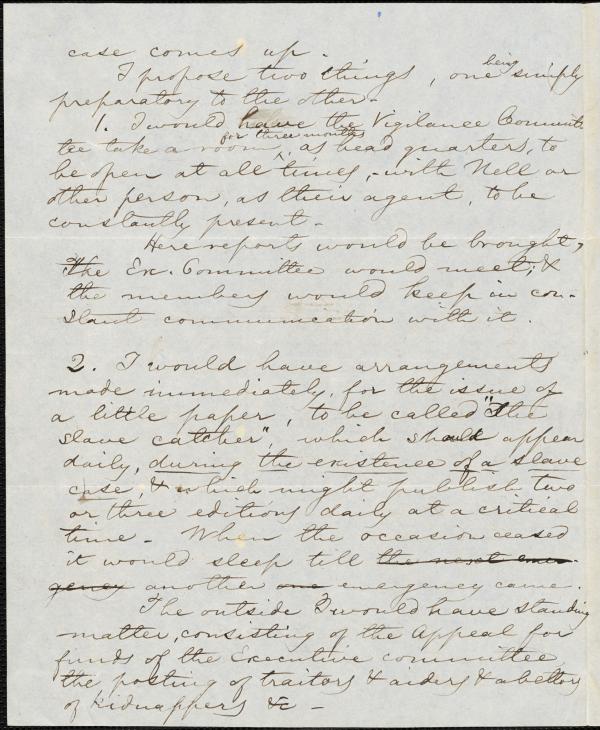 case comes up.
I propose two things, one being simply
preparatory to the other.
1. I would have the Vigilance Commit-
tee take a room, for three months, as head quarters, to
be open at all times, with Nell or
other person, as their agent, to be
constantly present.
Here reports would be brought,
The Ex. Committee would meet, &
the members would keep in con-
stant communication with it.
2. I would have arrangements
made immediately, for the issue of
a little paper, to be called "The
slave catcher", which should appear
daily, during the existence of a slave
case, & which might publish two
or three editions daily at a critical
time. When the occasion ceased
it would sleep till the next emer-
gency another one emergency came.
The outside I would have standing
matter, consisting of the Appeal for
funds of the Executive committee,
the posting of traitors & aiders & abettors
of kidnappers &c -